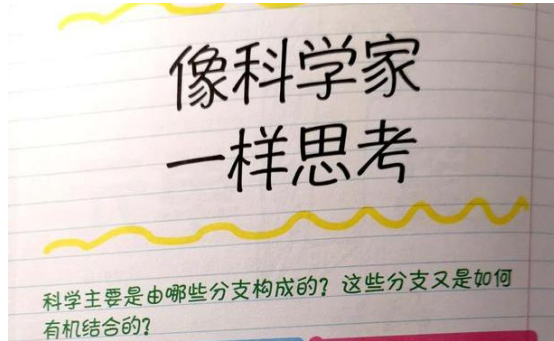 像科学家
一样思考
科学主要是由哪些分支构成的？这些分支又是如何
有机结合的？